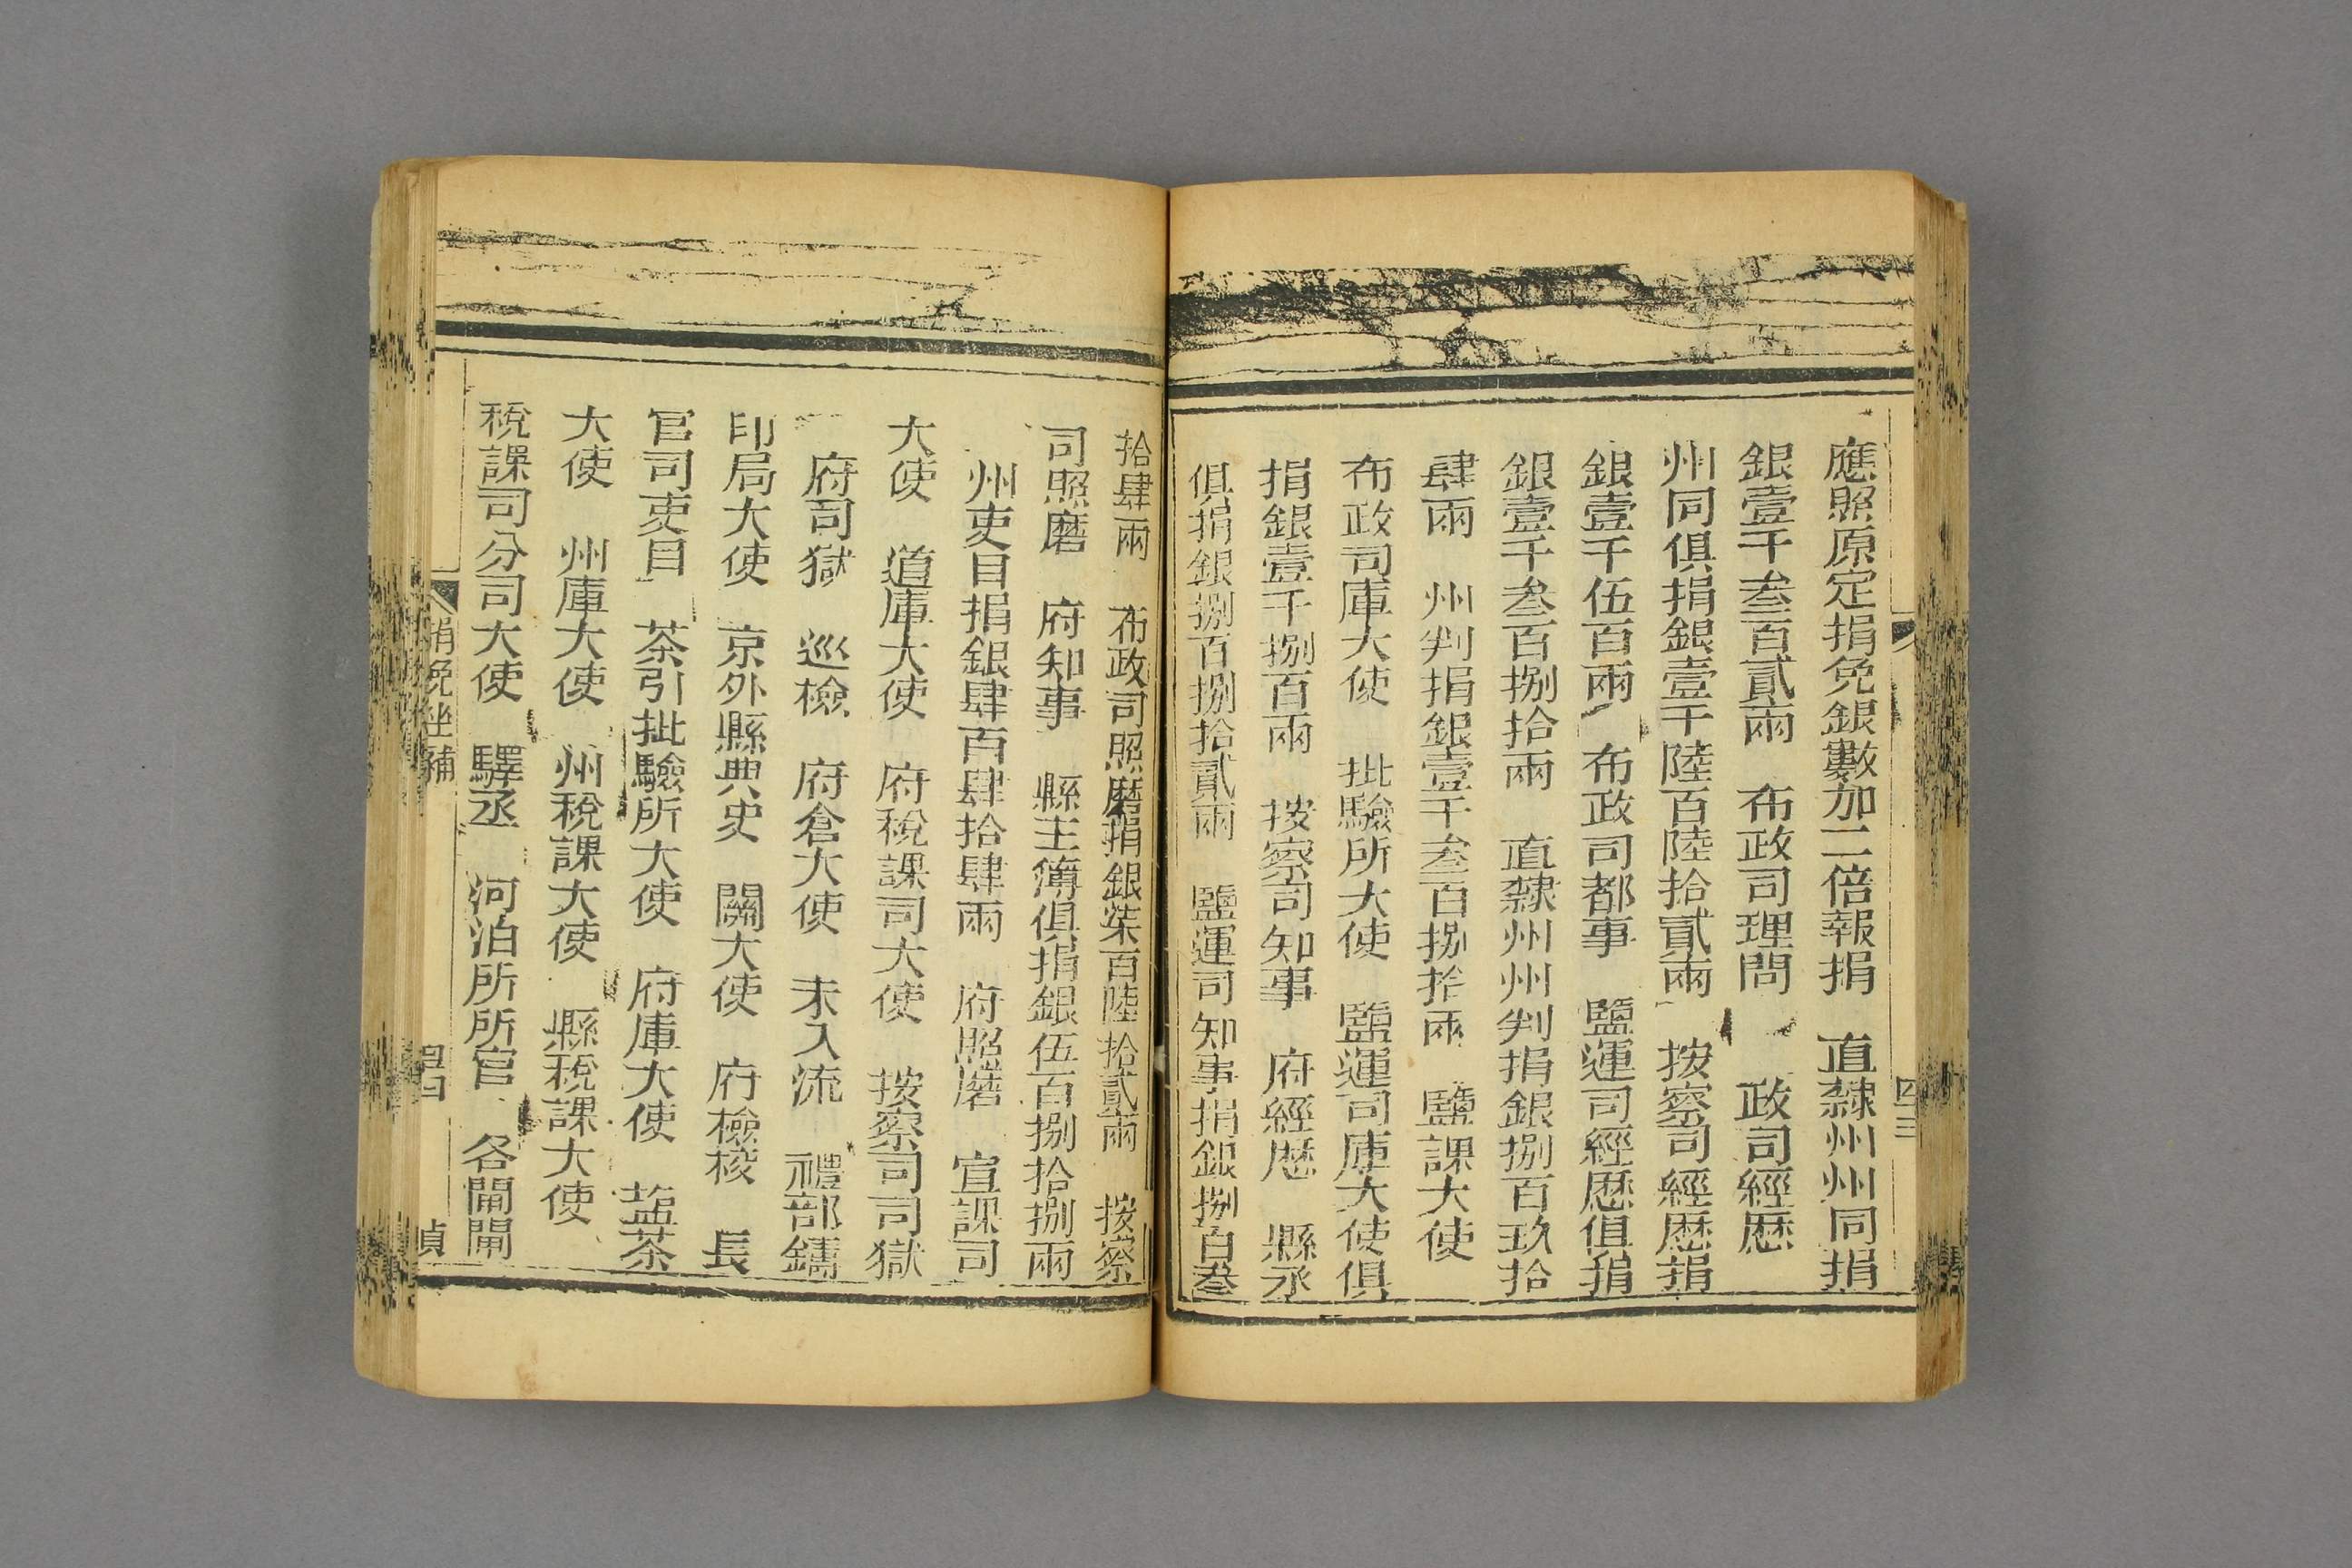 應照原定捐免銀數加二倍報捐　直隸州州同捐
銀壹千叁百貳兩　布政司理問　政司經歷
州同俱捐銀壹千陸百陸拾貳兩　按察司經歷捐
銀壹千伍百兩　布政司都事　鹽運司經歷俱捐
銀壹千叁百捌拾兩　直隸州州判捐銀捌百玖拾
肆兩　州判捐銀壹千叁百捌拾兩　鹽課大使
布政司庫大使　批驗所大使　鹽運司庫大使俱
捐銀壹千捌百兩　按察司知事　府經歷　縣丞
俱捐銀捌百捌拾貳兩　鹽運司知事捐銀捌百叁
拾肆兩　布政司照磨捐銀柒百陸拾貳兩　按察
司照磨　府知事　縣主簿俱捐銀伍百捌拾捌兩
州吏目捐銀肆百肆拾肆兩　府照磨　宣課司
大使　道庫大使　府稅課司大使　按察司司獄
府司獄　巡檢　府倉大使　未入流　禮部鑄
印局大使　京外縣典史　關大使　府檢校　長
官司吏目　茶引批驗所大使　府庫大使　盐茶
大使　州庫大使　州稅課大使　縣稅課大使
稅課司分司大使　驛丞　河泊所所官　各閘閘
捐免坐補
貞